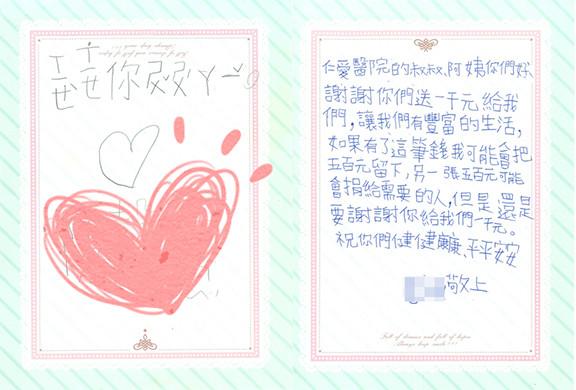 ㄒㄧㄝ ㄒㄧㄝ 你叔叔ㄚ一ˊ
仁愛醫院的叔叔、阿姨你們好、
謝謝你們送一千元給我
們，讓我們有豐富的生活，
如果有了這筆錢我可能會把
五百元留下，另一張五百元可能
會捐給需要的人，但是還是
要謝謝你給我們一千元。
祝你們健健康康、平平安安
敬上
Full of dreams and full of hopes
Always keep smile !!!